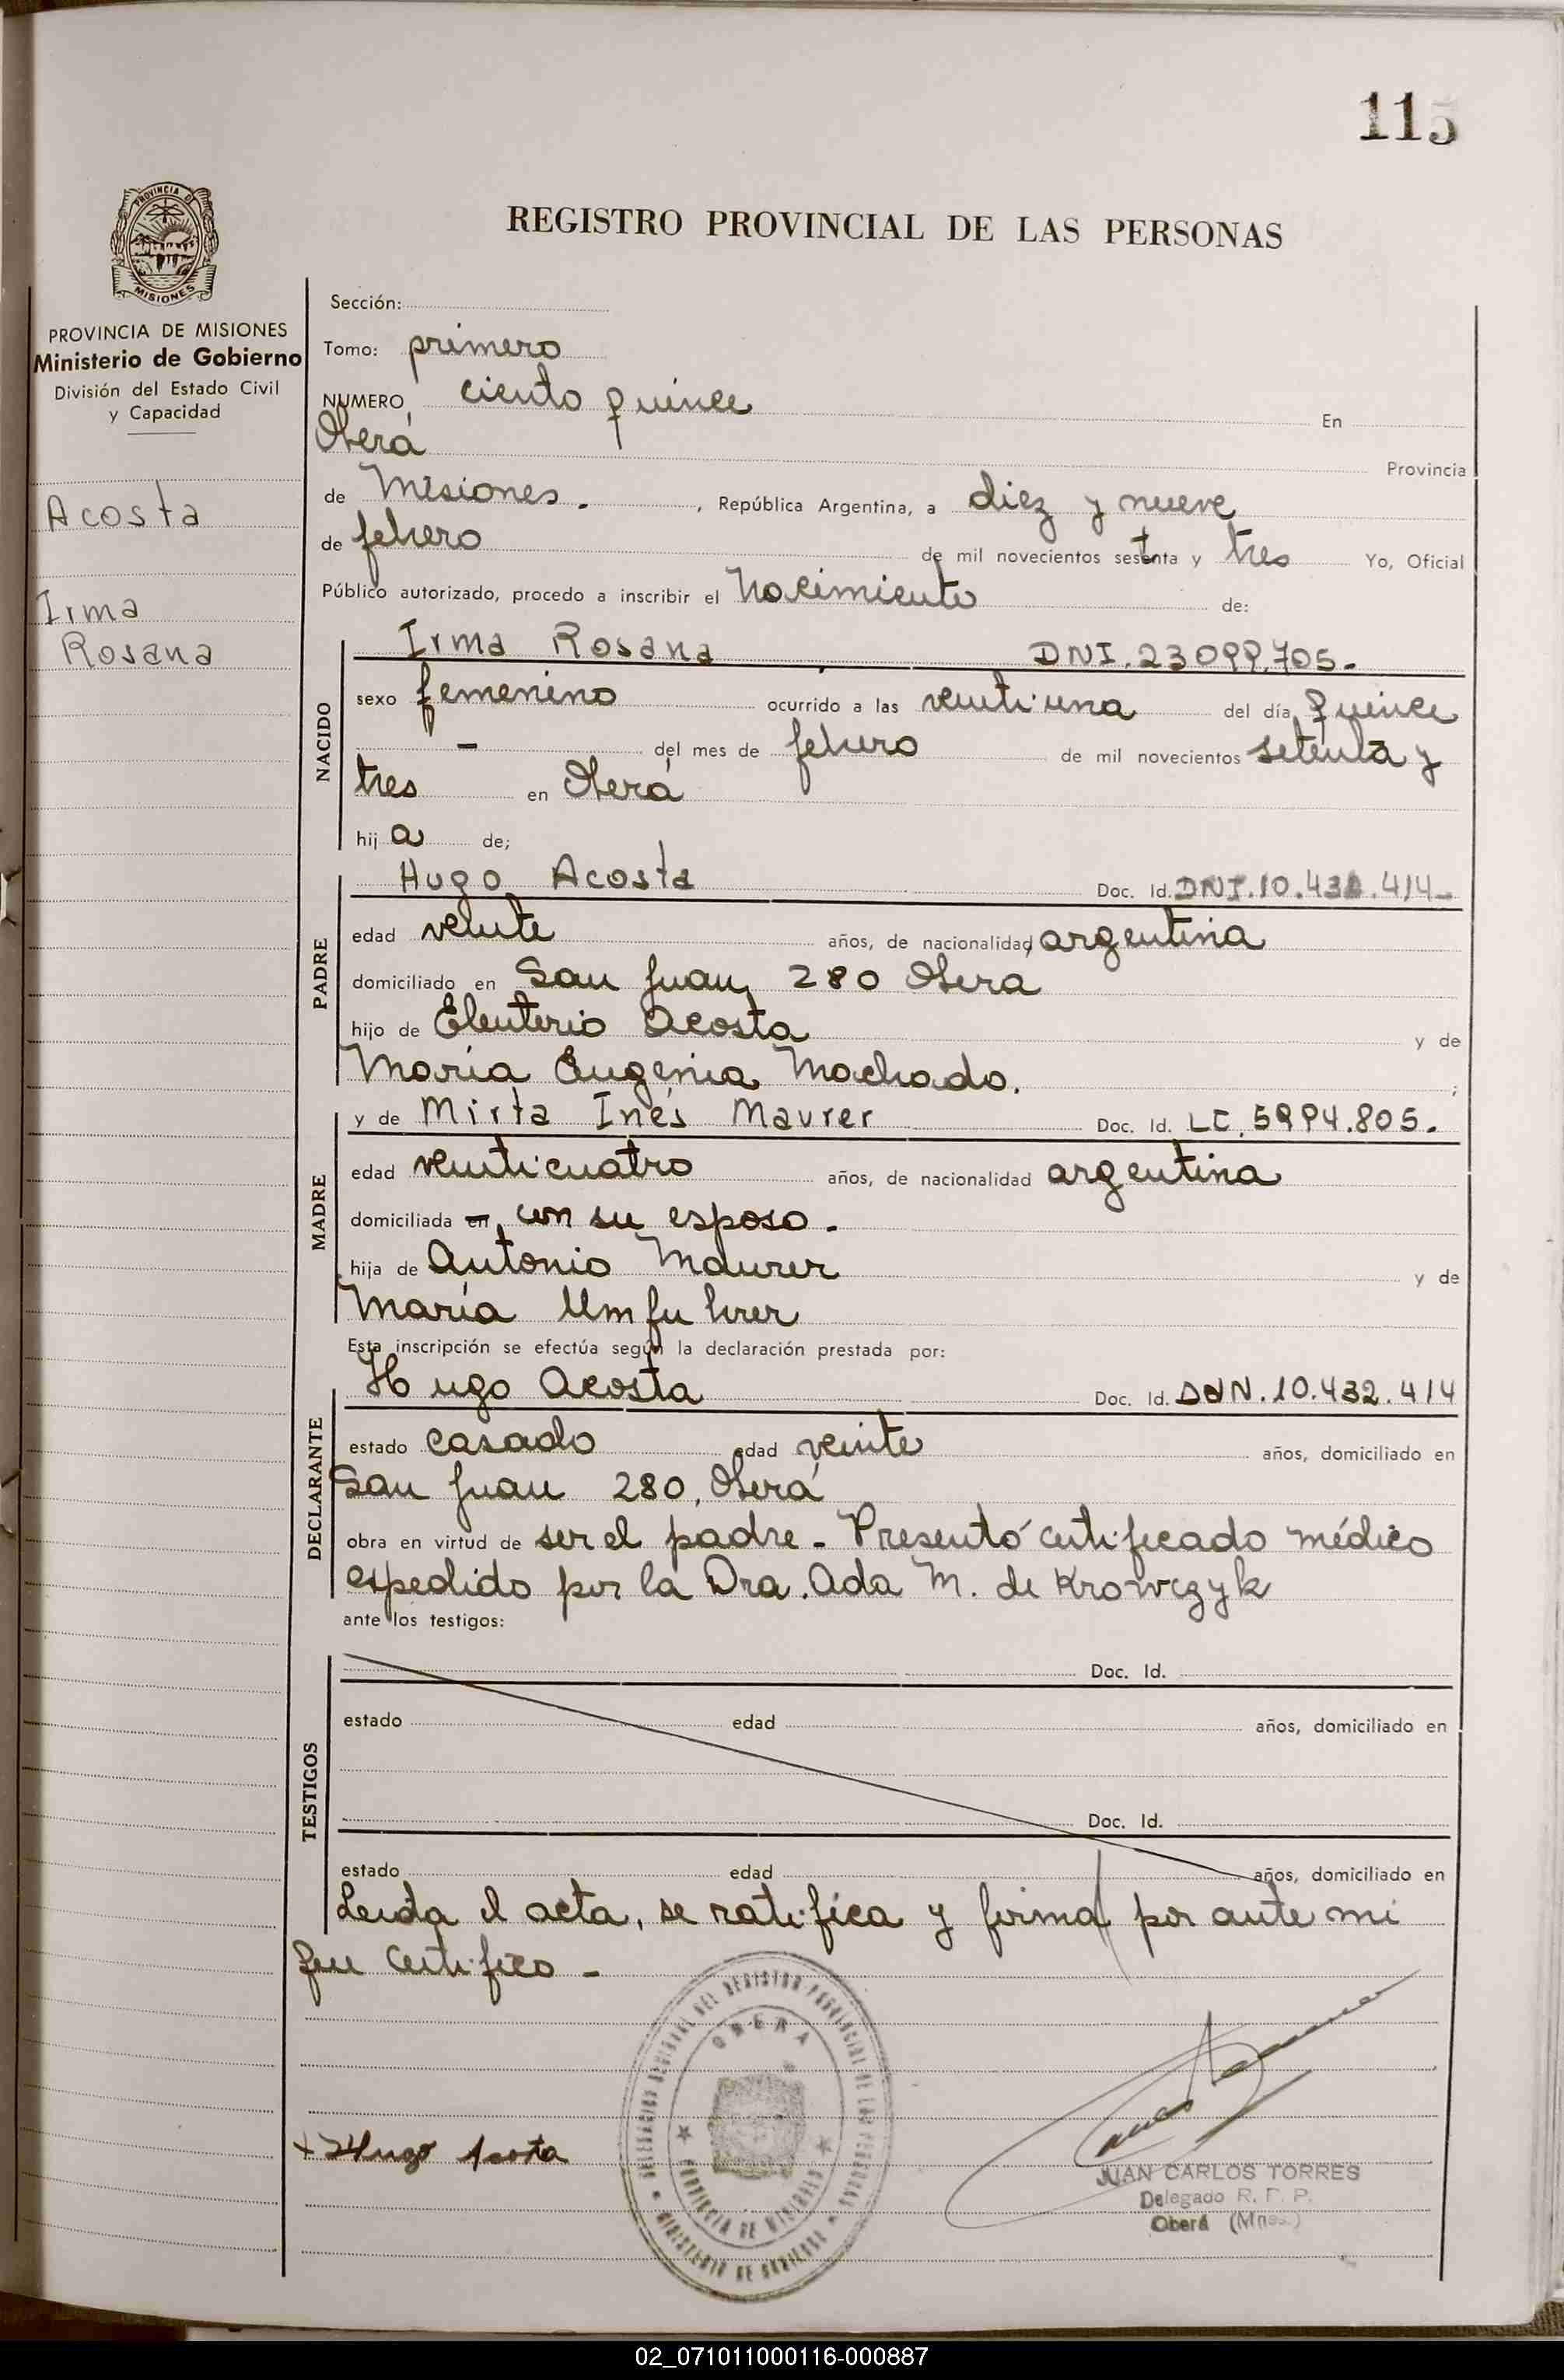 115
PROVINCIA DE
MISIONES
REGISTRO PROVINCIAL DE LAS PERSONAS
PROVINCIA DE MISIONES
Ministerio de Gobierno
División del Estado Civil
y Capacidad
Acosta
Irma
Rosana
Sección:
Tomo: primero
NUMERO ciento quince En
Oberá Provincia
de Misiones. , República Argentina, a diez y nueve
de febrero de mil novecientos setenta y tres Yo, Oficial
Público autorizado, procedo a inscribir el Nacimiento de:
NACIDO
Irma Rosana DNI. 23099.705.
sexo femenino ocurrido a las veintiuna del día quince
- del mes de febrero de mil novecientos setenta y
tres en Oberá
hij a de;
PADRE
Hugo Acosta Doc. Id. DNI. 10.432.414-
edad veinte años, de nacionalidad argentina
domiciliado en San Juan 280 Obera
hijo de Eleuterio Acosta y de
María Eugenia Machado. ;
MADRE
y de Mirta Inés Maurer Doc. Id. LC. 5994.805.
edad veinticuatro años, de nacionalidad argentina
domiciliada en con su esposo.
hija de Antonio Maurer y de
María Umfuhrer
Esta inscripción se efectúa según la declaración prestada por:
DECLARANTE
Hugo Acosta Doc. Id. DdN. 10.432.414
estado casado edad veinte años, domiciliado en
San Juan 280, Oberá
obra en virtud de ser el padre - Presentó certificado médico
espedido por la Dra. Ada M. de Krowczyk
ante los testigos:
TESTIGOS
Doc. Id.
estado edad años, domiciliado en
Doc. Id.
estado edad años, domiciliado en
Leida el acta, se ratifica y firma por ante mi
que certifico -
DELEGACION REGIONAL DEL REGISTRO PROVINCIAL DE LAS PERSONAS
OBERA
PROVINCIA DE MISIONES
MINISTERIO DE GOBIERNO
+ Hugo Acosta
JUAN CARLOS TORRES
Delegado R. P. P.
Oberá (Mnes.)
02_071011000116-000887